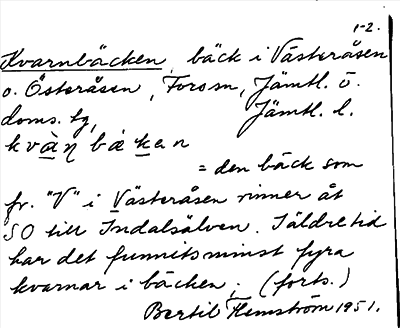 1-2.
Kvarnbäcken, bäck i Västeråsen
o. Österåsen, Fors sn, Jämtl. ö.
doms. tg, Jämtl. l.
kvàn bàkan
= den bäck som
fr. "V" i Västeråsen rinner åt
SO till Indalsälven. I äldre tid
har det funnits minst fyra
kvarnar i bäcken; (forts.)
Bertil Hemström 1951.